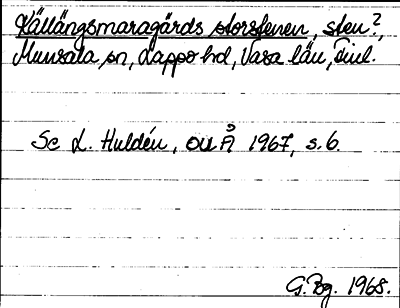 Källängsmaragårds storstenen, sten?,
Munsala sn, Lappo hd, Vasa län, Finl.
Se L. Huldén, OUÅ 1967, s. 6.
G. Bg. 1968.